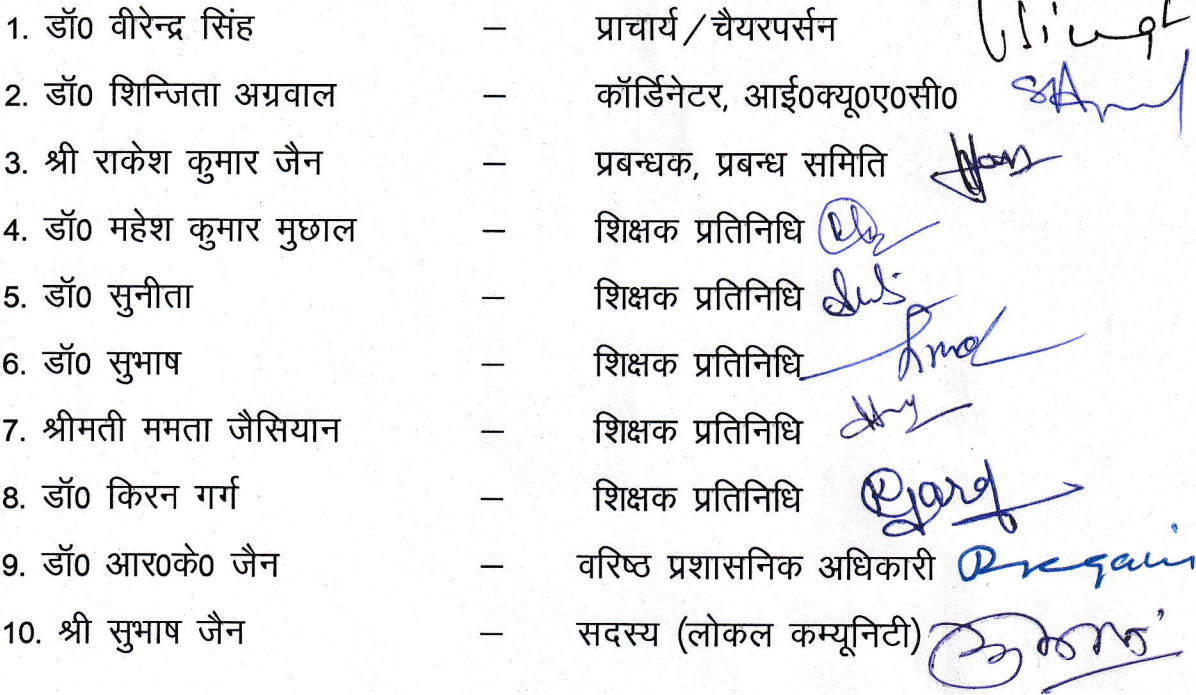 1. डॉ0 वीरेन्द्र सिंह – प्राचार्य / चैयरपर्सन
2. डॉ0 शिन्जिता अग्रवाल – कॉर्डिनेटर, आई0क्यू0ए0सी0
3. श्री राकेश कुमार जैन – प्रबन्धक, प्रबन्ध समिति
4. डॉ0 महेश कुमार मुछाल – शिक्षक प्रतिनिधि
5. डॉ0 सुनीता – शिक्षक प्रतिनिधि
6. डॉ0 सुभाष – शिक्षक प्रतिनिधि
7. श्रीमती ममता जैसियान – शिक्षक प्रतिनिधि
8. डॉ0 किरन गर्ग – शिक्षक प्रतिनिधि
9. डॉ0 आर0के0 जैन – वरिष्ठ प्रशासनिक अधिकारी
10. श्री सुभाष जैन – सदस्य (लोकल कम्यूनिटी)